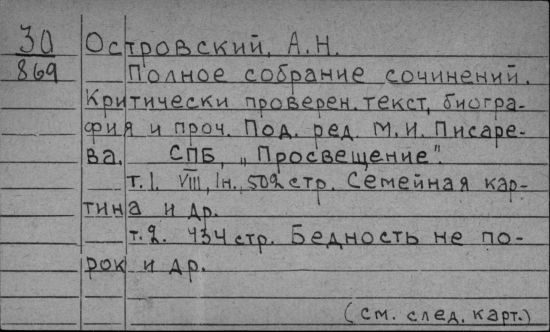 30 Островский, А.Н.
869 Полное собрание сочинений.
Критически проверен. текст, биогра-
фия и проч. Под. ред. М.И. Писаре-
ва. СПБ, „Просвещение".
т.1. VIII, 1н., 502 стр. Семейная кар-
тина и др.
т.2. 434 стр. Бедность не по-
рок и др.
(см. след. карт.)